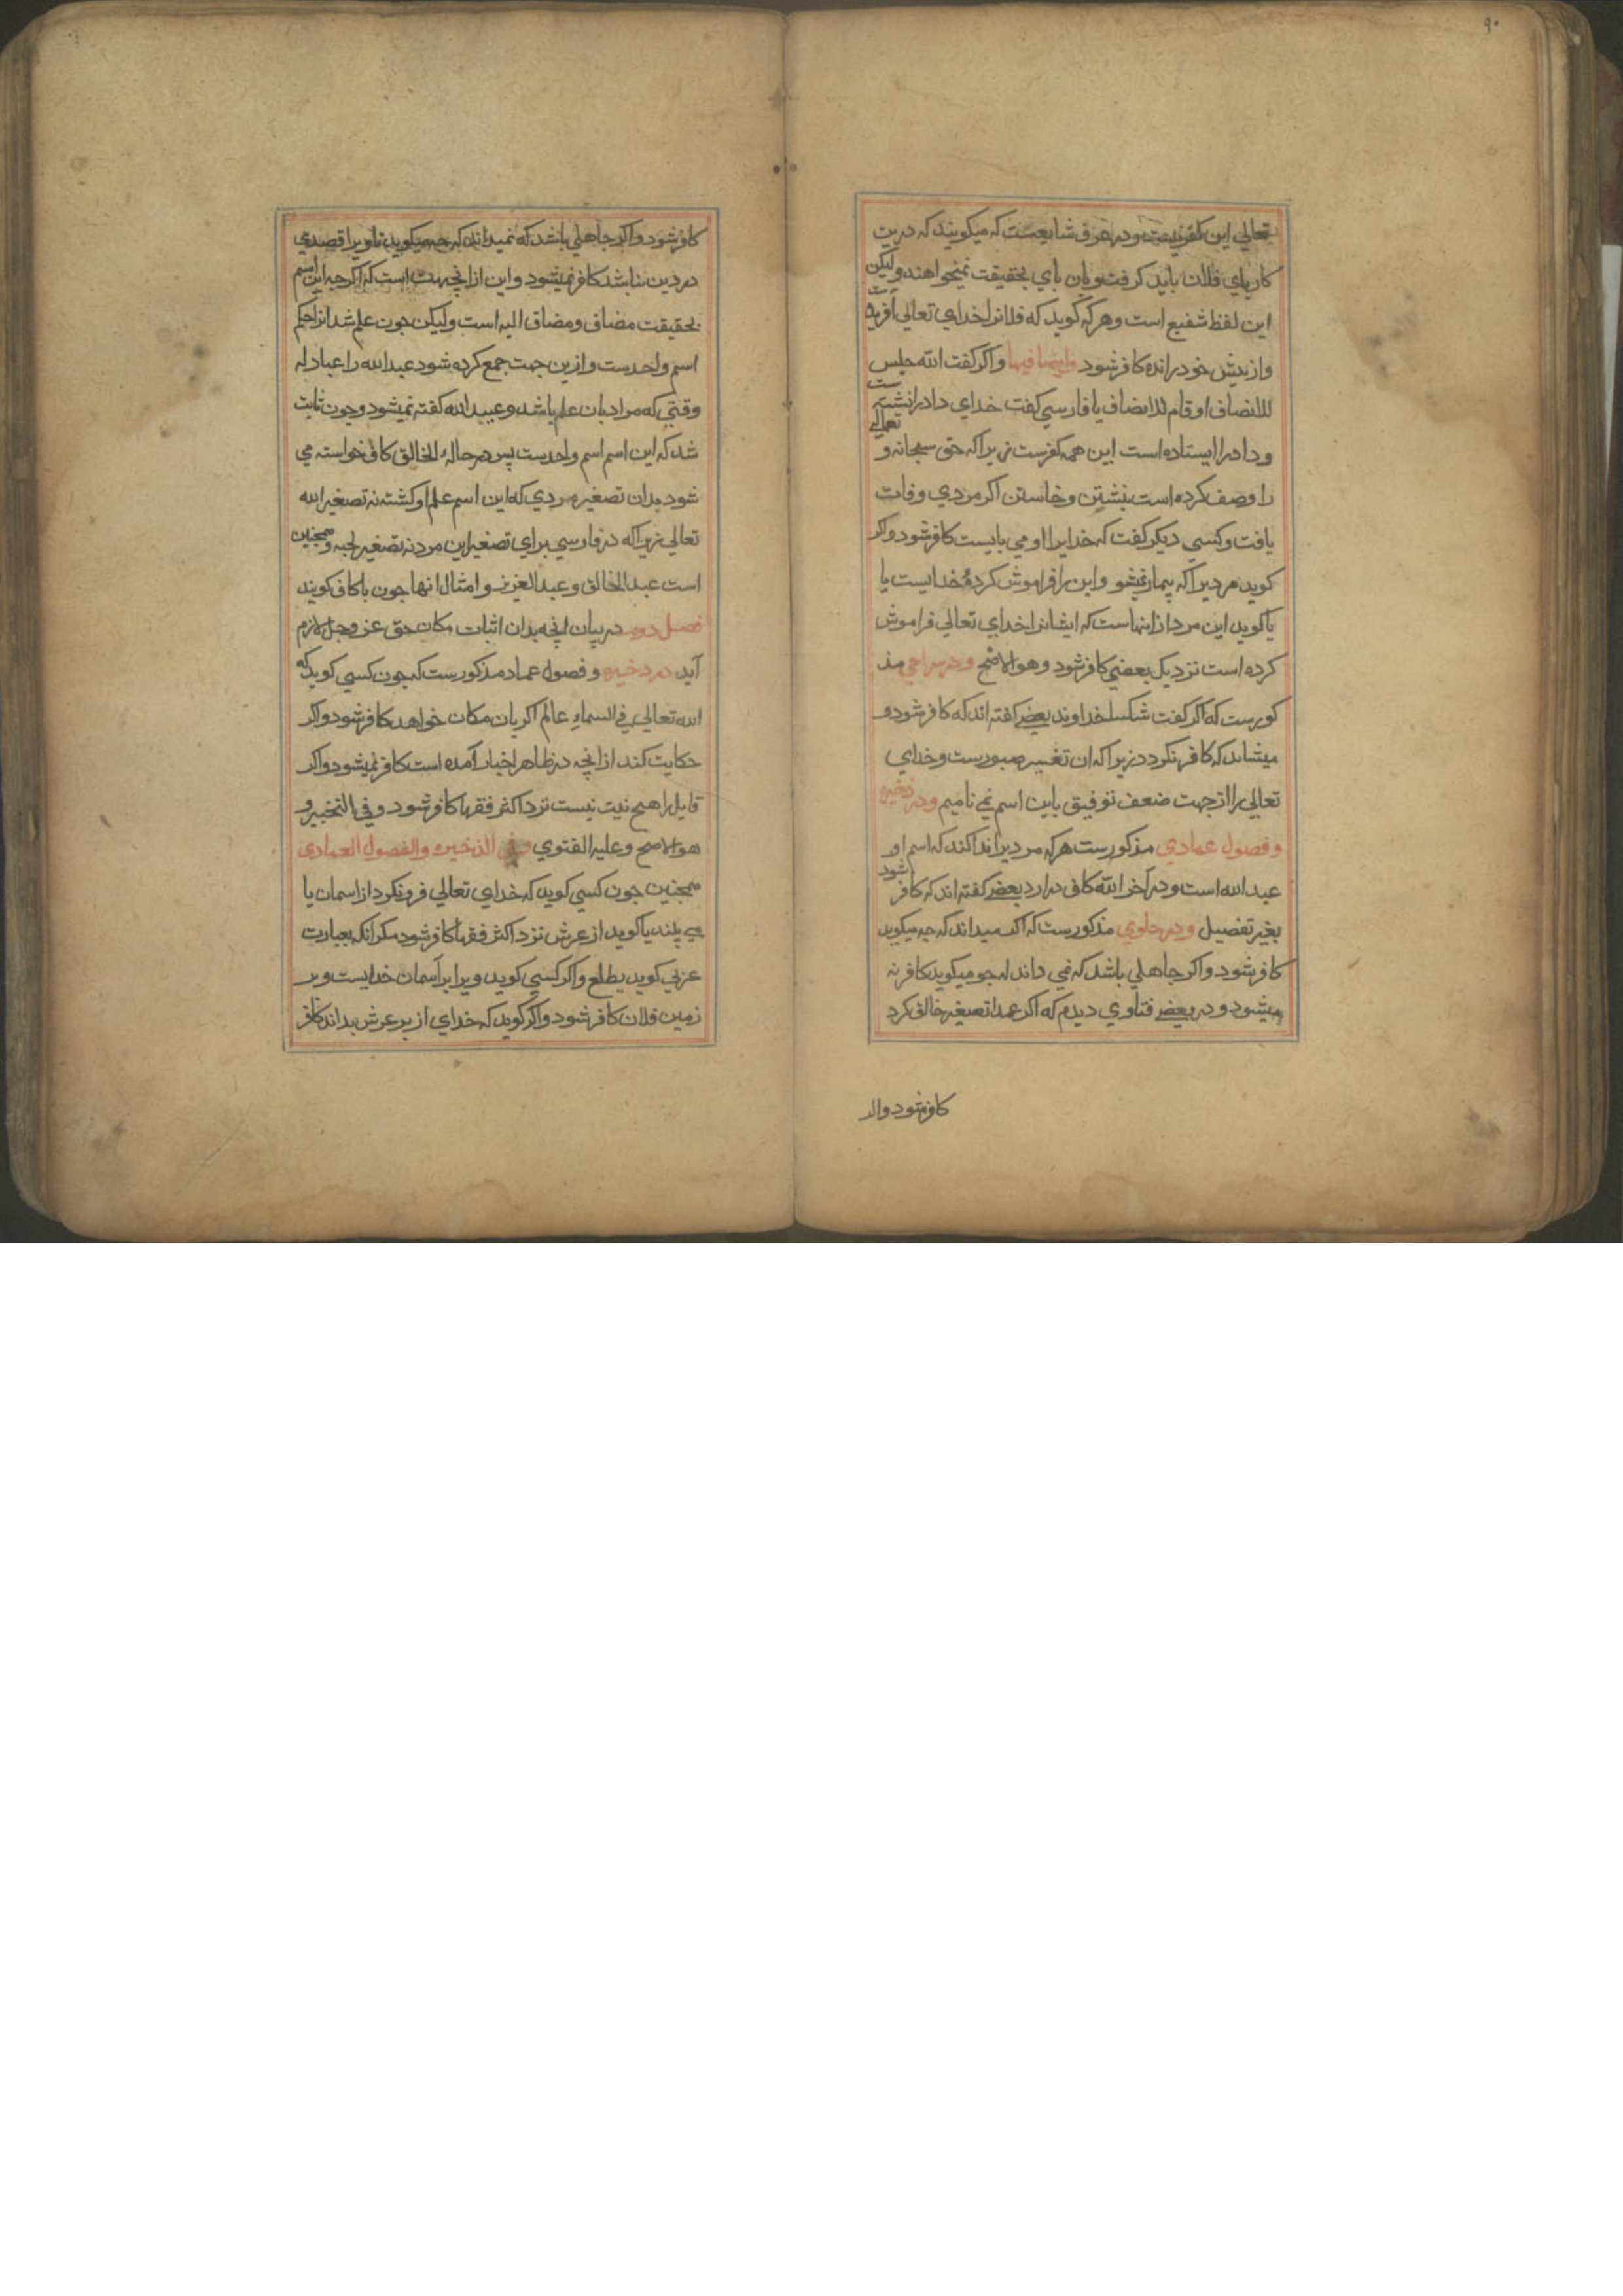 ۹۰
تعالی این کفر نیست و در عرف شایعست که میکویند که درین
کار پای فلان باید کرفت و بان پای بحقیقت نمیخواهند ولیکن
این لفظ شفیع است و هر که کوید که فلانرا خدای تعالی آفریده است
و از پیش خود رانده کافر شود وایضا فیها و اکر کفت الله جلس
للانصاف او قام للانصاف یا فارسی کفت خدای داد را نشسته است
و داد را ایستاده است این همه کفرست زیرا که حق سبحانه و تعالی
را وصف کرده است بنشتن و خاستن اکر مردی وفات
یافت و کسی دیکر کفت که خدایرا او می بایست کافر شود و اکر
کوید مردیرا که بیمار نمیشو و این را فراموش کرده خدایست یا
یا کوید این مرد ازانهاست که ایشانرا خدای تعالی فراموش
کرده است نزدیک بعضی کافر شود و هو الاصح و در سراجی مذ
کورست که اکر کفت خداوند بعضی کفته اند که کافر شود و
میشاند که کافر نکردد زیرا که ان تفسیر صبورست و خدای
تعالی را از جهت ضعف توفیق باین اسم نمی نامیم و در ذخیره
و فصول عمادی مذکورست هر که مردیرا ندا کند که اسم او
عبد الله است و در آخر الله کاف درارد بعضی کفته اند که کافر شود
بغیر تفصیل و در حاوی مذکورست که اکر میداند که چه میکوید
کافر شود و اکر جاهلی باشد که نمی داند که جو میکوید کافر نه
میشود و در بعضی فتاوی دیدم که اکر عمدا تصغیر خالق کرد
کافر شود واکر
کافر شود و اکر جاهلی باشد که نمیداند که چه میکوید تا ویرا قصدی
در دین نباشد کافر نمیشود و این ازانجهت است که اکرچه این اسم
بحقیقت مضاف و مضاف الیه است ولیکن جون علم شد انرا حکم
اسم واحدست و ازین جهت جمع کرده شود عبد الله را عبادله
وقتی که مراد بان علم باشد و عبید الله کفته نمیشود و چون ثابت
شد که این اسم اسم واحدست پس در حالة الخالق کاف خواسته می
شود بدان تصغیر مردی که این اسم علم او کشته نه تصغیر الله
تعالی زیرا که در فارسی برای تصغیر این مرد نه تصغیر و همچنین
است عبد الخالق و عبد العزیز و امثال انها جون با کاف کویند
فصل دوم در بیان انچه بدان اثبات مکان حق عز و جل لازم
آید در ذخیره و فصول عماد مذکورست که جون کسی کوید که
الله تعالی فی السماء عالم اکر بان مکان خواهد کافر شود و اکر
حکایت کند ازانچه در ظاهر اخبار آمده است کافر نمیشود و اکر
قایل را هیچ نیت نیست نزد اکثر فقها کافر شود و فی التخییر و
هو الاصح و علیه الفتوی و فی الذخیره والفصول العمادی
همچنین جون کسی کوید که خدای تعالی فرو نکرد از اسمان یا
می بیند یا کوید از عرش نزد اکثر فقها کافر شود مکر انکه بعبارت
عربی کوید یطلع و اکر کسی کوید ویرا بر آسمان خدایست و بر
زمین فلان کافر شود و اکر کوید که خدای از بر عرش بداند کافر